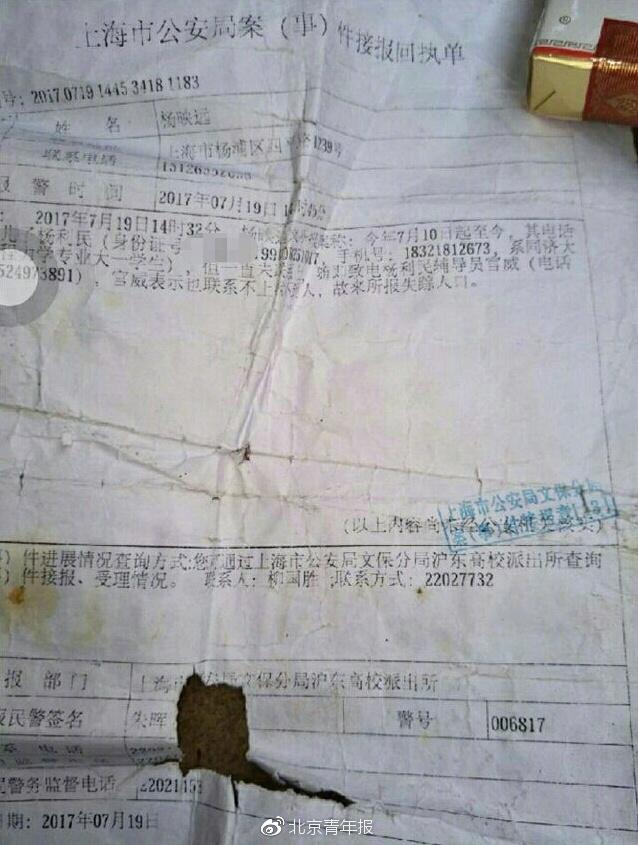 上海市公安局案（事）件接报回执单
号: 2017 0719 1445 3418 1183
姓 名 杨映远
联系电话 上海市杨浦区四平路1239号
报警时间 2017年07月19日14时
: 2017年7月19日14时32分, 称: 今年7月10日起至今, 其电话
儿子杨利民 (身份证号 手机号: 18321812673, 系同济大
学专业大一学生), 但一直 随即致电杨利民辅导员官威 (电话
524973891), 官威表示也联系不上 人, 故来所报失踪人口。
上海市公安局文保分局
(以上内容尚未经公安机关核实)
件进展情况查询方式:您可通过上海市公安局文保分局沪东高校派出所查询
件接报、受理情况。 联系人: 柳国胜 ;联系方式: 22027732
报部门 上海 文保分局沪东高校派出所
民警签名 朱晖 警号 006817
系电话
警务监督电话 220214
日期: 2017年07月19日
北京青年报